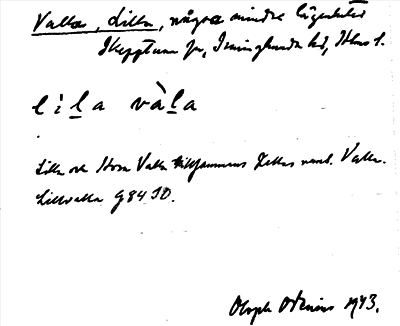 Valla, Lilla, några mindre lägenheter
Skepptuna sn, Seminghundra hd, Uppl.
li̇l̲a vàl̲a
Lilla och Stora Valla tillsammans kallas vanl. Valla.
Lillvalla G 84 JD.
Oloph Odenius 1943.